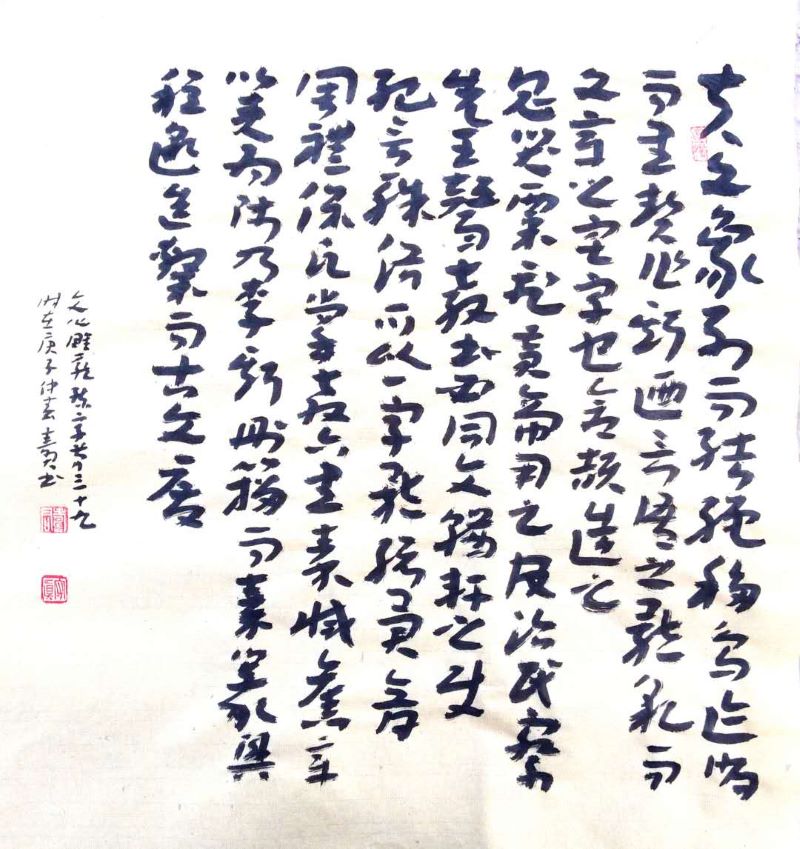 夫文象列而結繩移鳥迹明
而書契作斯迺言語之體貌而
文章之宅宇也倉頡造之
鬼哭粟飛黃帝用之官治民察
先王聲教書必同文輶軒之使
紀言殊俗所以一字體總異音
周禮保氏掌教六書秦滅舊章
以吏為師乃李斯刪籀而秦篆興
程邈造隸而古文廢
文心雕龍練字第三十九
時在庚子仲春書